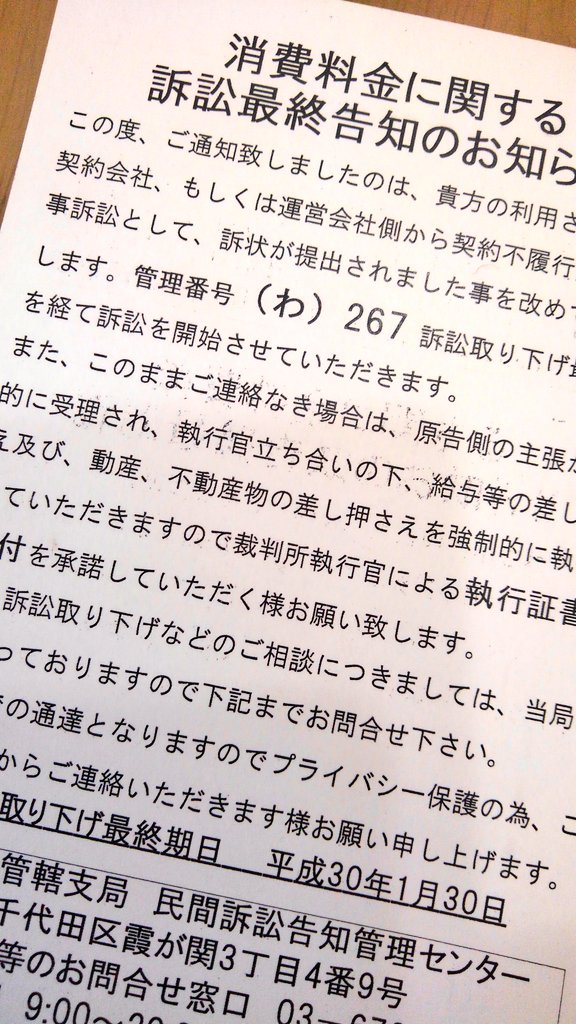 消費料金に関する
訴訟最終告知のお知ら
この度、ご通知致しましたのは、貴方の利用さ
契約会社、もしくは運営会社側から契約不履行
事訴訟として、訴状が提出されました事を改め
します。管理番号（わ）267 訴訟取り下げ
を経て訴訟を開始させていただきます。
また、このままご連絡なき場合は、原告側の主張が
的に受理され、執行官立ち合いの下、給与等の差し
え及び、動産、不動産物の差し押さえを強制的に執
ていただきますので裁判所執行官による執行証書
付を承諾していただく様お願い致します。
訴訟取り下げなどのご相談につきましては、当局
っておりますので下記までお問合せ下さい。
の通達となりますのでプライバシー保護の為、ご
からご連絡いただきます様お願い申し上げます。
取り下げ最終期日 平成30年1月30日
管轄支局 民間訴訟告知管理センター
千代田区霞が関3丁目4番9号
等のお問合せ窓口 03－
9:00～